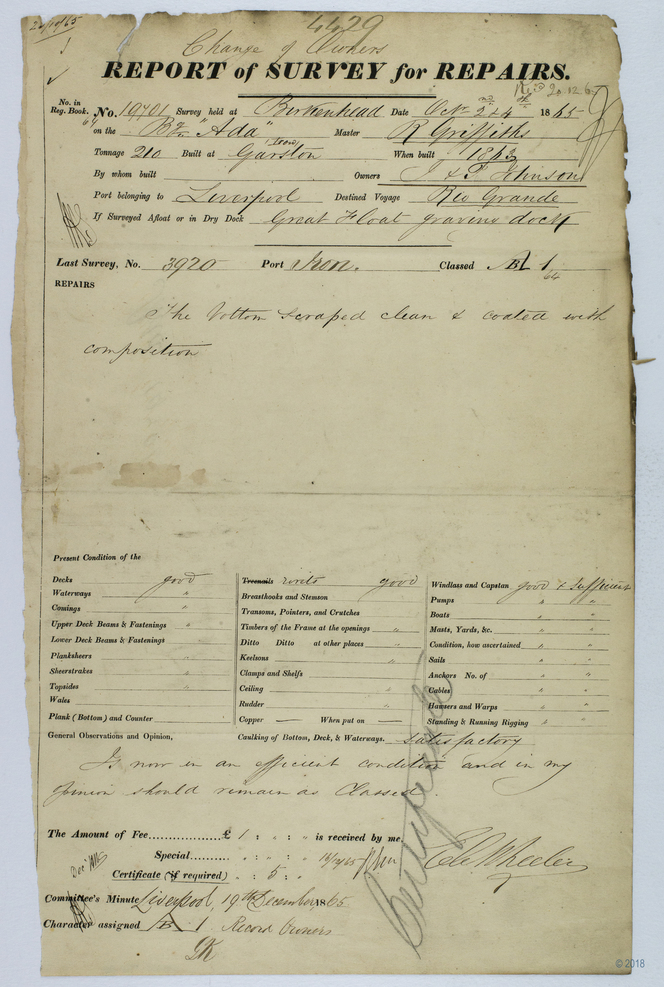 4429
Change of Owners
REPORT of SURVEY for REPAIRS.
No. in Reg. Book. No. 19701 Survey held at Birkenhead Date Octr 2nd & 4th 1865
64 on the Bgn "Ada" Master R Griffiths
Tonnage 210 Built at Garston (Iron) When built 1863
By whom built Owners J & F Johnson
Port belonging to Liverpool Destined Voyage Rio Grande
If Surveyed Afloat or in Dry Dock Great Float graving dock
Last Survey, No. 3920 Port Iron. Classed A1
64
REPAIRS
The bottom scraped clean & coated with
composition
Present Condition of the
Decks good
Waterways "
Comings "
Upper Deck Beams & Fastenings "
Lower Deck Beams & Fastenings
Planksheers
Sheerstrakes "
Topsides
Wales
Plank (Bottom) and Counter
Treenails rivets good
Breasthooks and Stemson
Transoms, Pointers, and Crutches
Timbers of the Frame at the openings "
Ditto Ditto at other places "
Keelsons "
Clamps and Shelfs
Ceiling "
Rudder "
Copper — When put on —
Caulking of Bottom, Deck, & Waterways. satisfactory
Windlass and Capstan good & sufficient
Pumps " "
Boats " "
Masts, Yards, &c. " "
Condition, how ascertained " "
Sails " "
Anchors No. of " "
Cables " "
Hawsers and Warps " "
Standing & Running Rigging " "
General Observations and Opinion,
Is now in an efficient condition and in my
opinion should remain as Classed
The Amount of Fee £ 1 : " : " is received by me,
Special " : " : "
Certificate (if required) " : 5 : "
Wheeler
Committee's Minute Liverpool, 19th December 1865
Character assigned A 1 Record Owners
© 2018